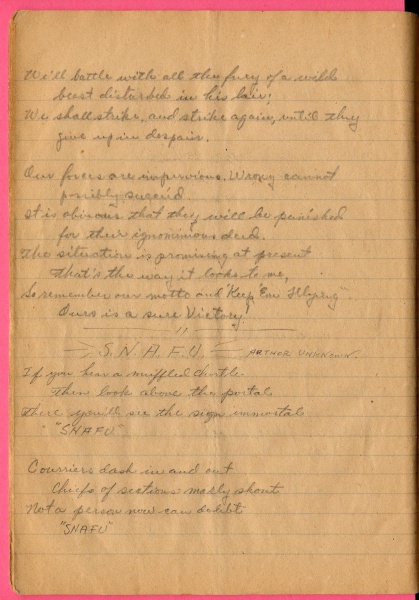 We'll battle with all the fury of a wild
beast disturbed in his lair;
We shall strike, and strike again, until they
give up in despair.
Our forces are impervious. Wrong cannot
possibly succeed
It is obvious that they will be punished
for their ignominious deed.
The situation is promising at present
That's the way it looks to me,
So remember our motto and "Keep 'Em Flying".
Ours is a sure Victory!
"
S.N.A.F.U. AUTHOR UNKNOWN.
If you hear a muffled chortle
Then look above the portal
There you'll see the sign immortal
"SNAFU"
Courriers dash in and out
Chiefs of sections madly shout
Not a person now can doubt
"SNAFU"